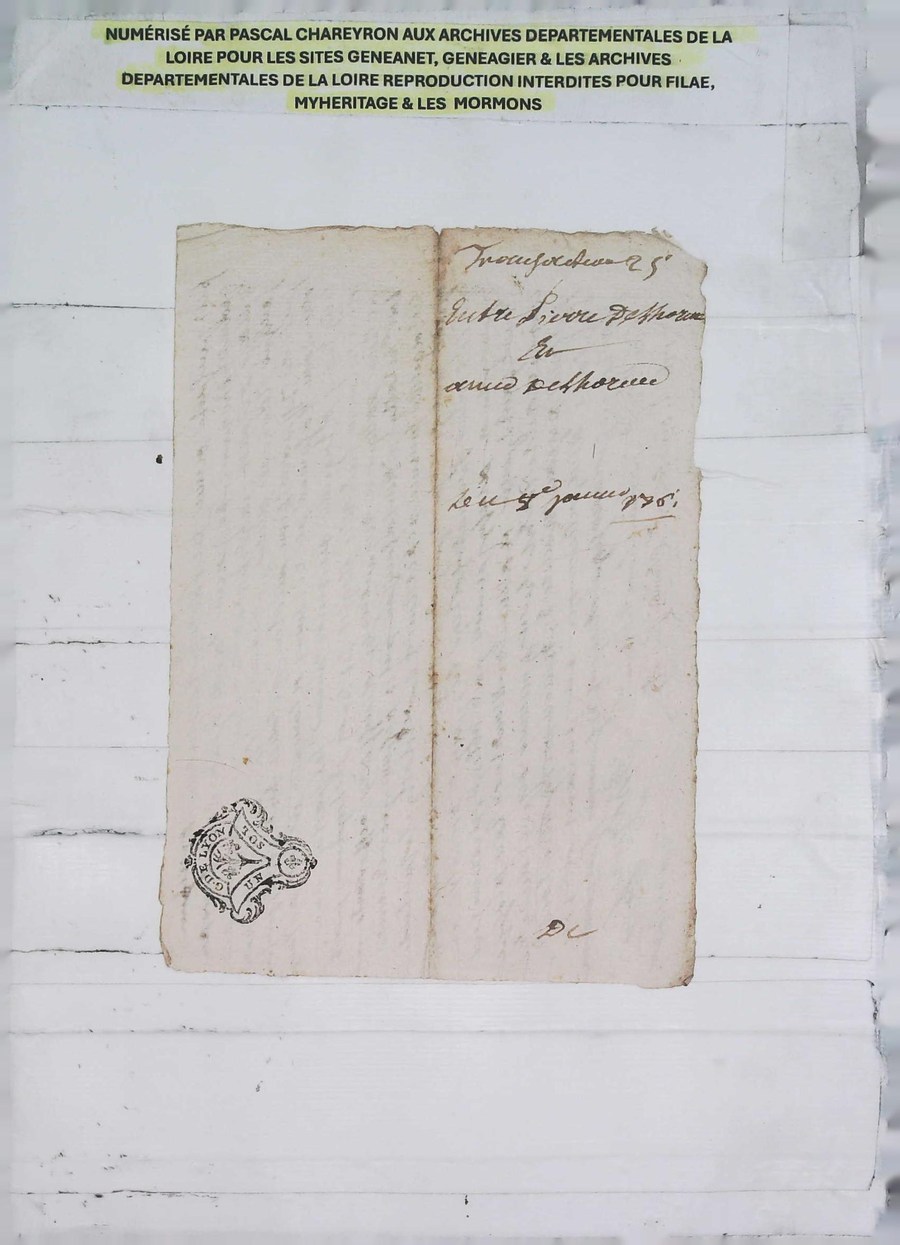 NUMÉRISÉ PAR PASCAL CHAREYRON AUX ARCHIVES DEPARTEMENTALES DE LA
LOIRE POUR LES SITES GENEANET, GENEAGIER & LES ARCHIVES
DEPARTEMENTALES DE LA LOIRE REPRODUCTION INTERDITES POUR FILAE,
MYHERITAGE & LES MORMONS
Transaction 25
Entre Pierre
Et
anne
G. DE LYON
TOS
UN
Dc